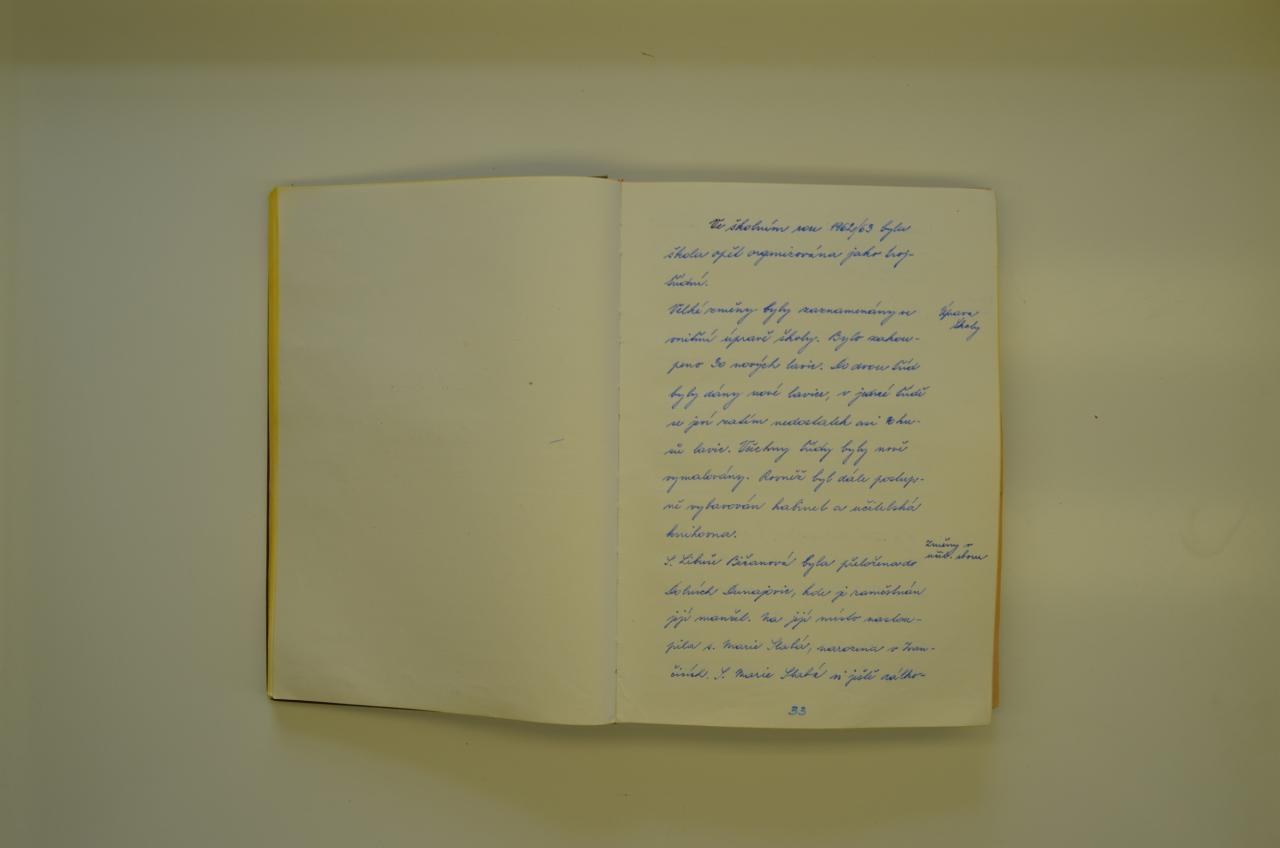 Ve školním roce 1962/63 byla
škola opět organizována jako troj-
třídní.
Velké změny byly zaznamenány ve
Úprava
školy
vnitřní úpravě školy. Bylo zakou-
peno 30 nových lavic. Do dvou tříd
byly dány nové lavice, v jedné třídě
se jeví zatím nedostatek asi ku-
sů lavic. Všechny třídy byly nově
vymalovány. Rovněž byl dále postup-
ně vybavován kabinet a učitelská
knihovna.
Změny v
učit. sboru
S. Libuše Bižanová byla přeložena do
Dolních Dunajovic, kde je zaměstnán
její manžel. Na její místo nastou-
pila s. Marie Slabá, narozena v Ivan-
čicích. S. Marie Slabá si ještě dálko-
33